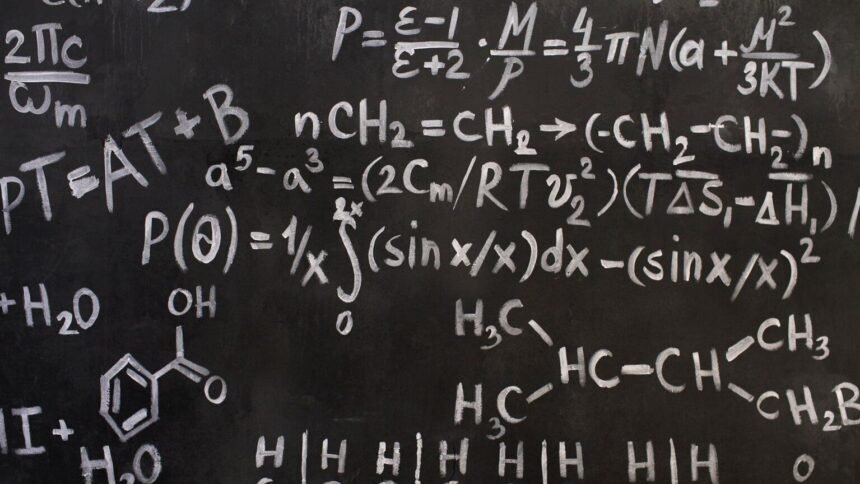 2πc
ω_m
P = (ε-1)/(ε+2) · M/P = 4/3 πN(a + M²/3KT)
pT = AT + B
nCH₂ = CH₂ → (-CH₂-CH₂-)ₙ
a⁵ - a³ = (2Cₘ/RTv₂²)(TΔS̅₁ - ΔH̅₁)
P(θ) = 1/x ∫₀²ˣ (sin x/x)dx - (sin x/x)²
+ H₂O
OH
O
H₃C
CH₃
HC-CH
H₃C
CH₂B
I +
H₂O
H H H H H H H H
O